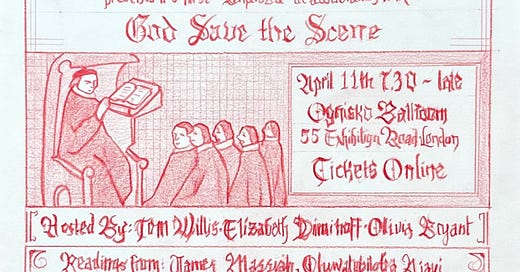 God Save the Scene
April 11th 7.30 ~ late
Ognisko Ballroom
55 Exhibition Road London
Tickets Online
Hosted By: Tom Willis · Elizabeth Dimitroff · Olivia Bryant
Readings from: James Massiah, Oluwatobiloba Ajayi